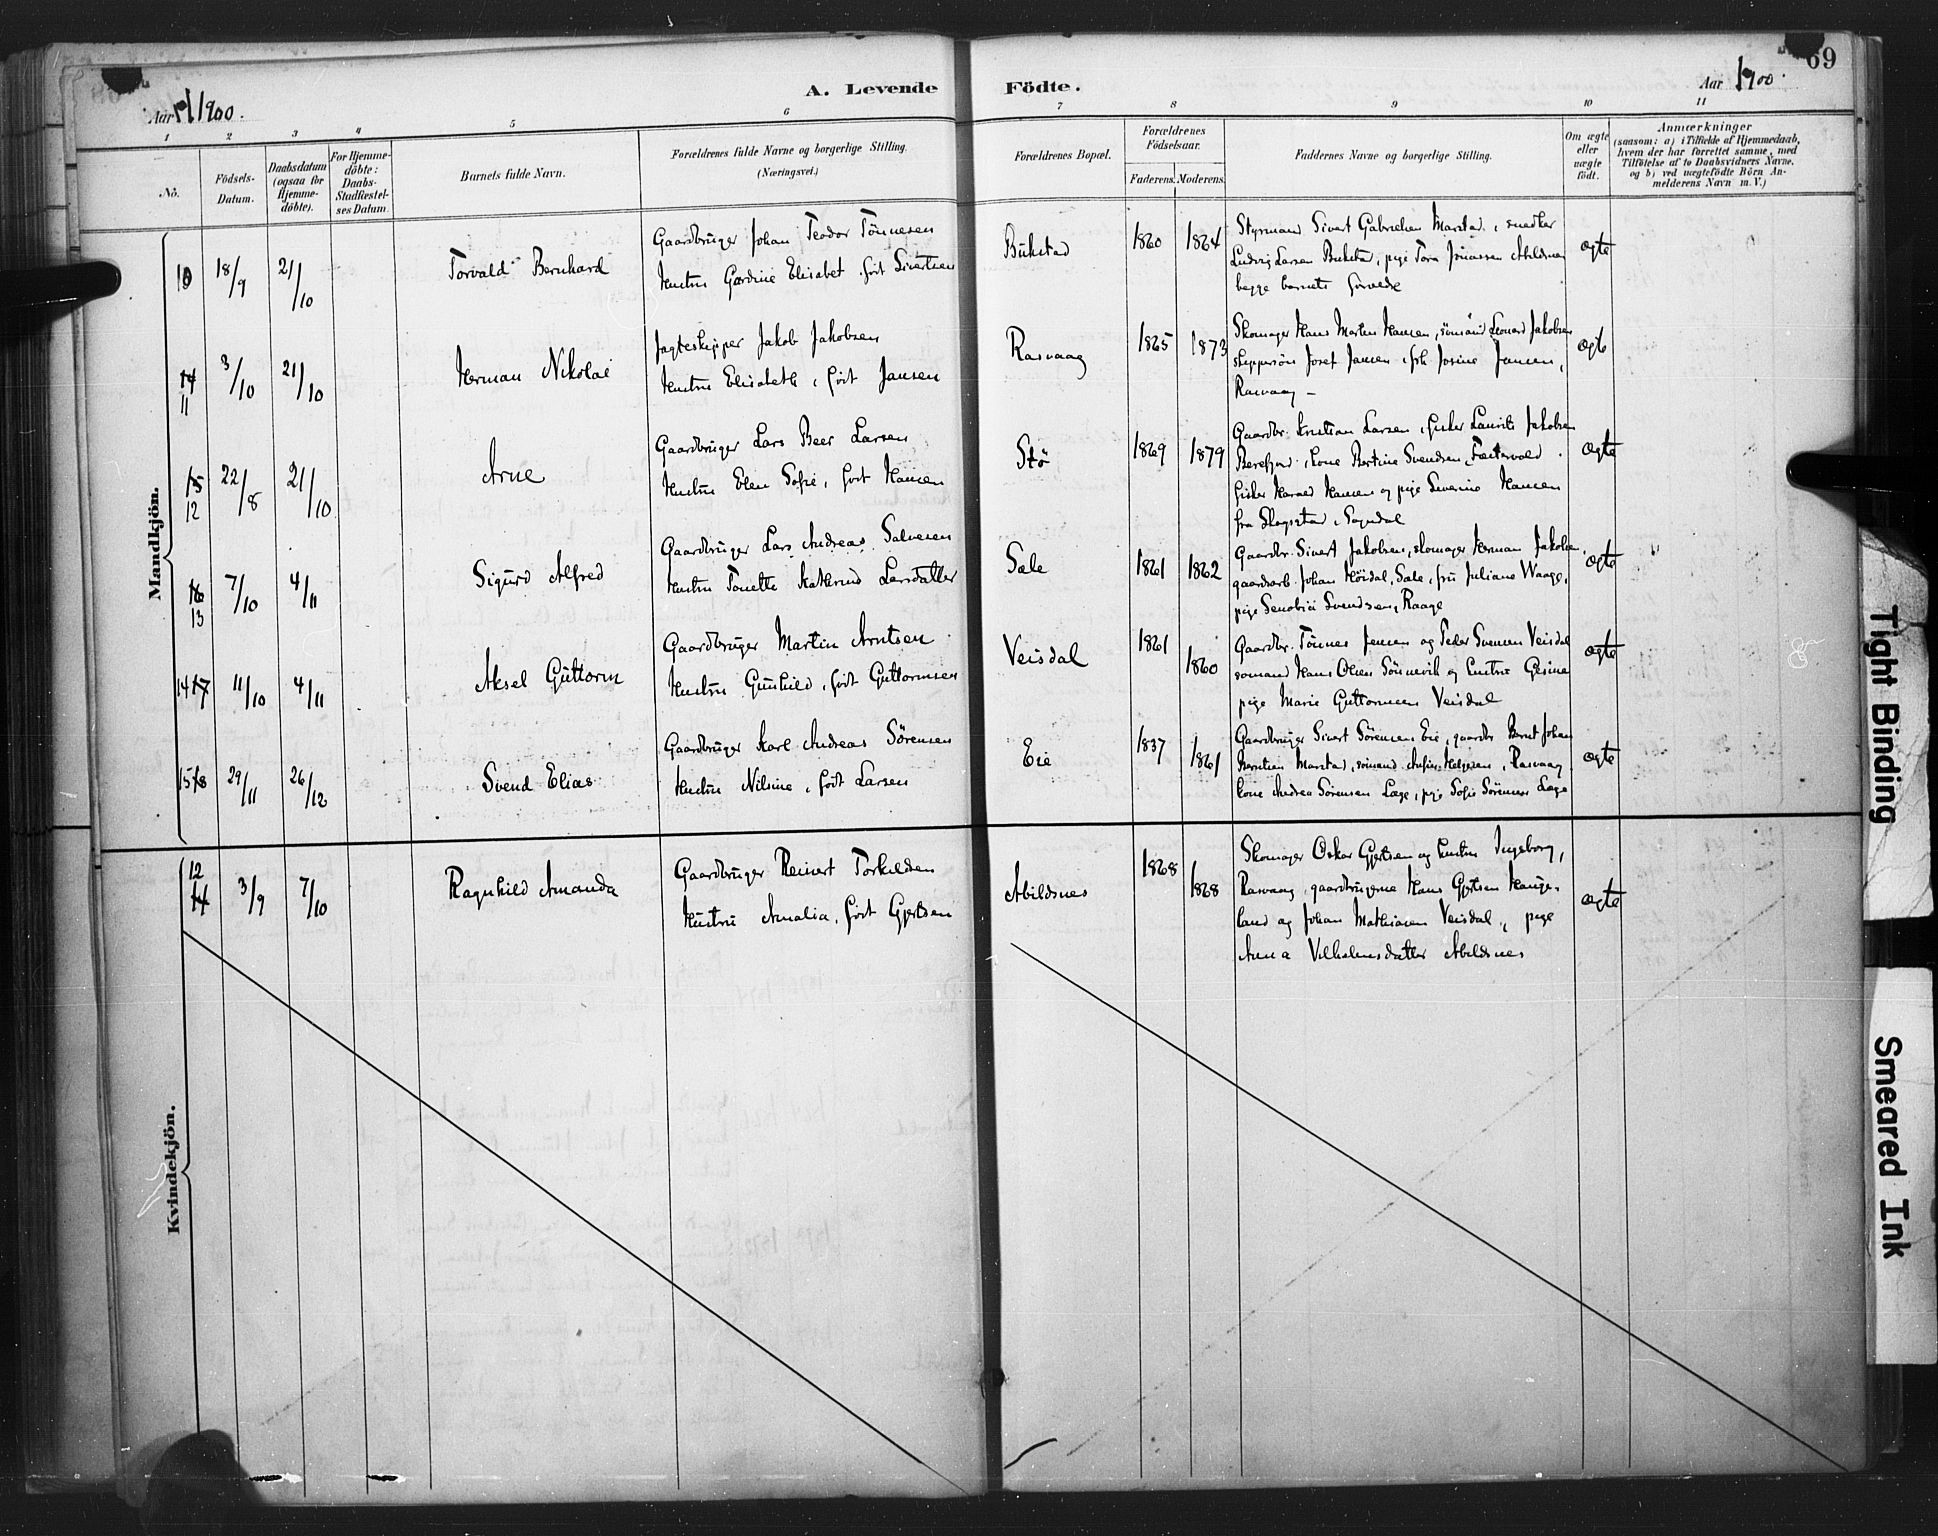 69
A. Levende Födte.
Aar 1900.
Aar 1900.
1 2 3 4 5 6 7 8 9 10 11
No.
Födsels-Datum.
Daabsdatum (ogsaa for Hjemme-döbte).
For Hjemme-döbte: Daabs-Stadfæstel-ses Datum.
Barnets fulde Navn.
Forældrenes fulde Navne og borgerlige Stilling. (Næringsvei.)
Forældrenes Bopæl.
Forældrenes Födselsaar.
Faderens. Moderens.
Faddernes Navne og borgerlige Stilling.
Om ægte eller uægte födt.
Anmærkninger
(saasom: a) i Tilfælde af Hjemmedaab,
hvem der har forrettet samme, med
Tilföielse af to Daabsvidners Navne,
og b) ved uægtefödte Börn An-
melderens Navn m. V.)
Mandkjön.
10 18/9 21/10 Torvald Bernhard
Gaardbruger Johan Teodor Tönnesen
Hustru Gardine Elisabet født Sivertsen
Bukstad 1860 1864
Styrmand Sivert Gabrielsen Marstad, snedker
Ludvig Larsen Bukstad, pige Tora Jonassen Abildsnes
begge barnets forældre
ægte
14 11 3/10 21/10 Herman Nikolai
Jagteskipper Jakob Jakobsen
Hustru Elisabeth, født Jansen
Rasvaag 1865 1873
Skomager Hans Martin Hansen, sömand Leonard Jakobsen
skippersön Josef Jansen, frk Josine Jensen,
Rasvaag –
ægte
15 12 22/8 21/10 Arne
Gaardbruger Lars Beer Larsen
Hustru Elen Sofie, født Hansen
Stö 1869 1879
Gaardbr. Kristian Larsen, fisker Laurits Jakobsen
kone Bertine Svendsen
fisker Harald Hansen og pige Severine Hansen
fra Skogestad, Sogndal
ægte
16 13 7/10 4/11 Sigurd Alfred
Gaardbruger Lars Andreas Salvesen
Hustru Tonette Kathrine Larsdatter
Sæle 1861 1862
Gaardbr. Sivert Jakobsen, skomager Herman Jakobsen,
gaardarb. Johan Höisdal, Sæle, fru Juliane Waage,
pige Senobie Svendsen, Raage
ægte
14 17 11/10 4/11 Aksel Guttorm
Gaardbruger Martin Arntsen
Hustru Gunhild, født Guttormsen
Veisdal 1861 1860
Gaardbr. Tönnes Jensen og Peder Svensen Veisdal
sömand Hans Olsen Sönnevik og hustru Gesine
pige Marie Guttormsen Veisdal
ægte
15 18 29/11 26/12 Svend Elias
Gaardbruger Karl Andreas Sörensen
Hustru Nilsine, født Larsen
Eie 1837 1861
Gaardbruger Sivert Sörensen Eie, gaardbr Bernt Johan
Berntsen Marstad, sömand Helgesen, Rasvaag
kone Andrea Sörensen Lage, pige Sofie Sörensen Lage
ægte
Kvindekjön.
12 14 3/9 7/10 Ragnhild Amanda
Gaardbruger Reinert Torkildsen
Hustru Amalia, født Gjertsen
Abildsnes 1868 1868
Skomager Oskar Gjertsen og hustru Ingeborg,
Rasvaag, gaardbrugerne Hans Gjertsen Hauge-
land og Johan Mathiasen Veisdal, pige
Anna Vilhelmsdatter Abildsnes
ægte
Tight Binding
Smeared Ink